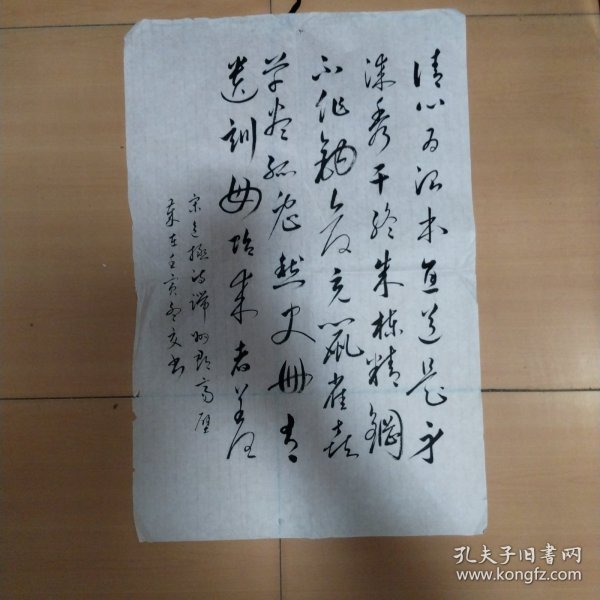 清心为治本直道是身
谋秀干终成栋精钢
不作钩仓充鼠雀喜
草尽狐兔愁史册有
遗训毋贻来者羞
宋包拯诗端州郡斋壁
岁在壬寅冬文书
孔夫子旧书网
www.kongfz.com